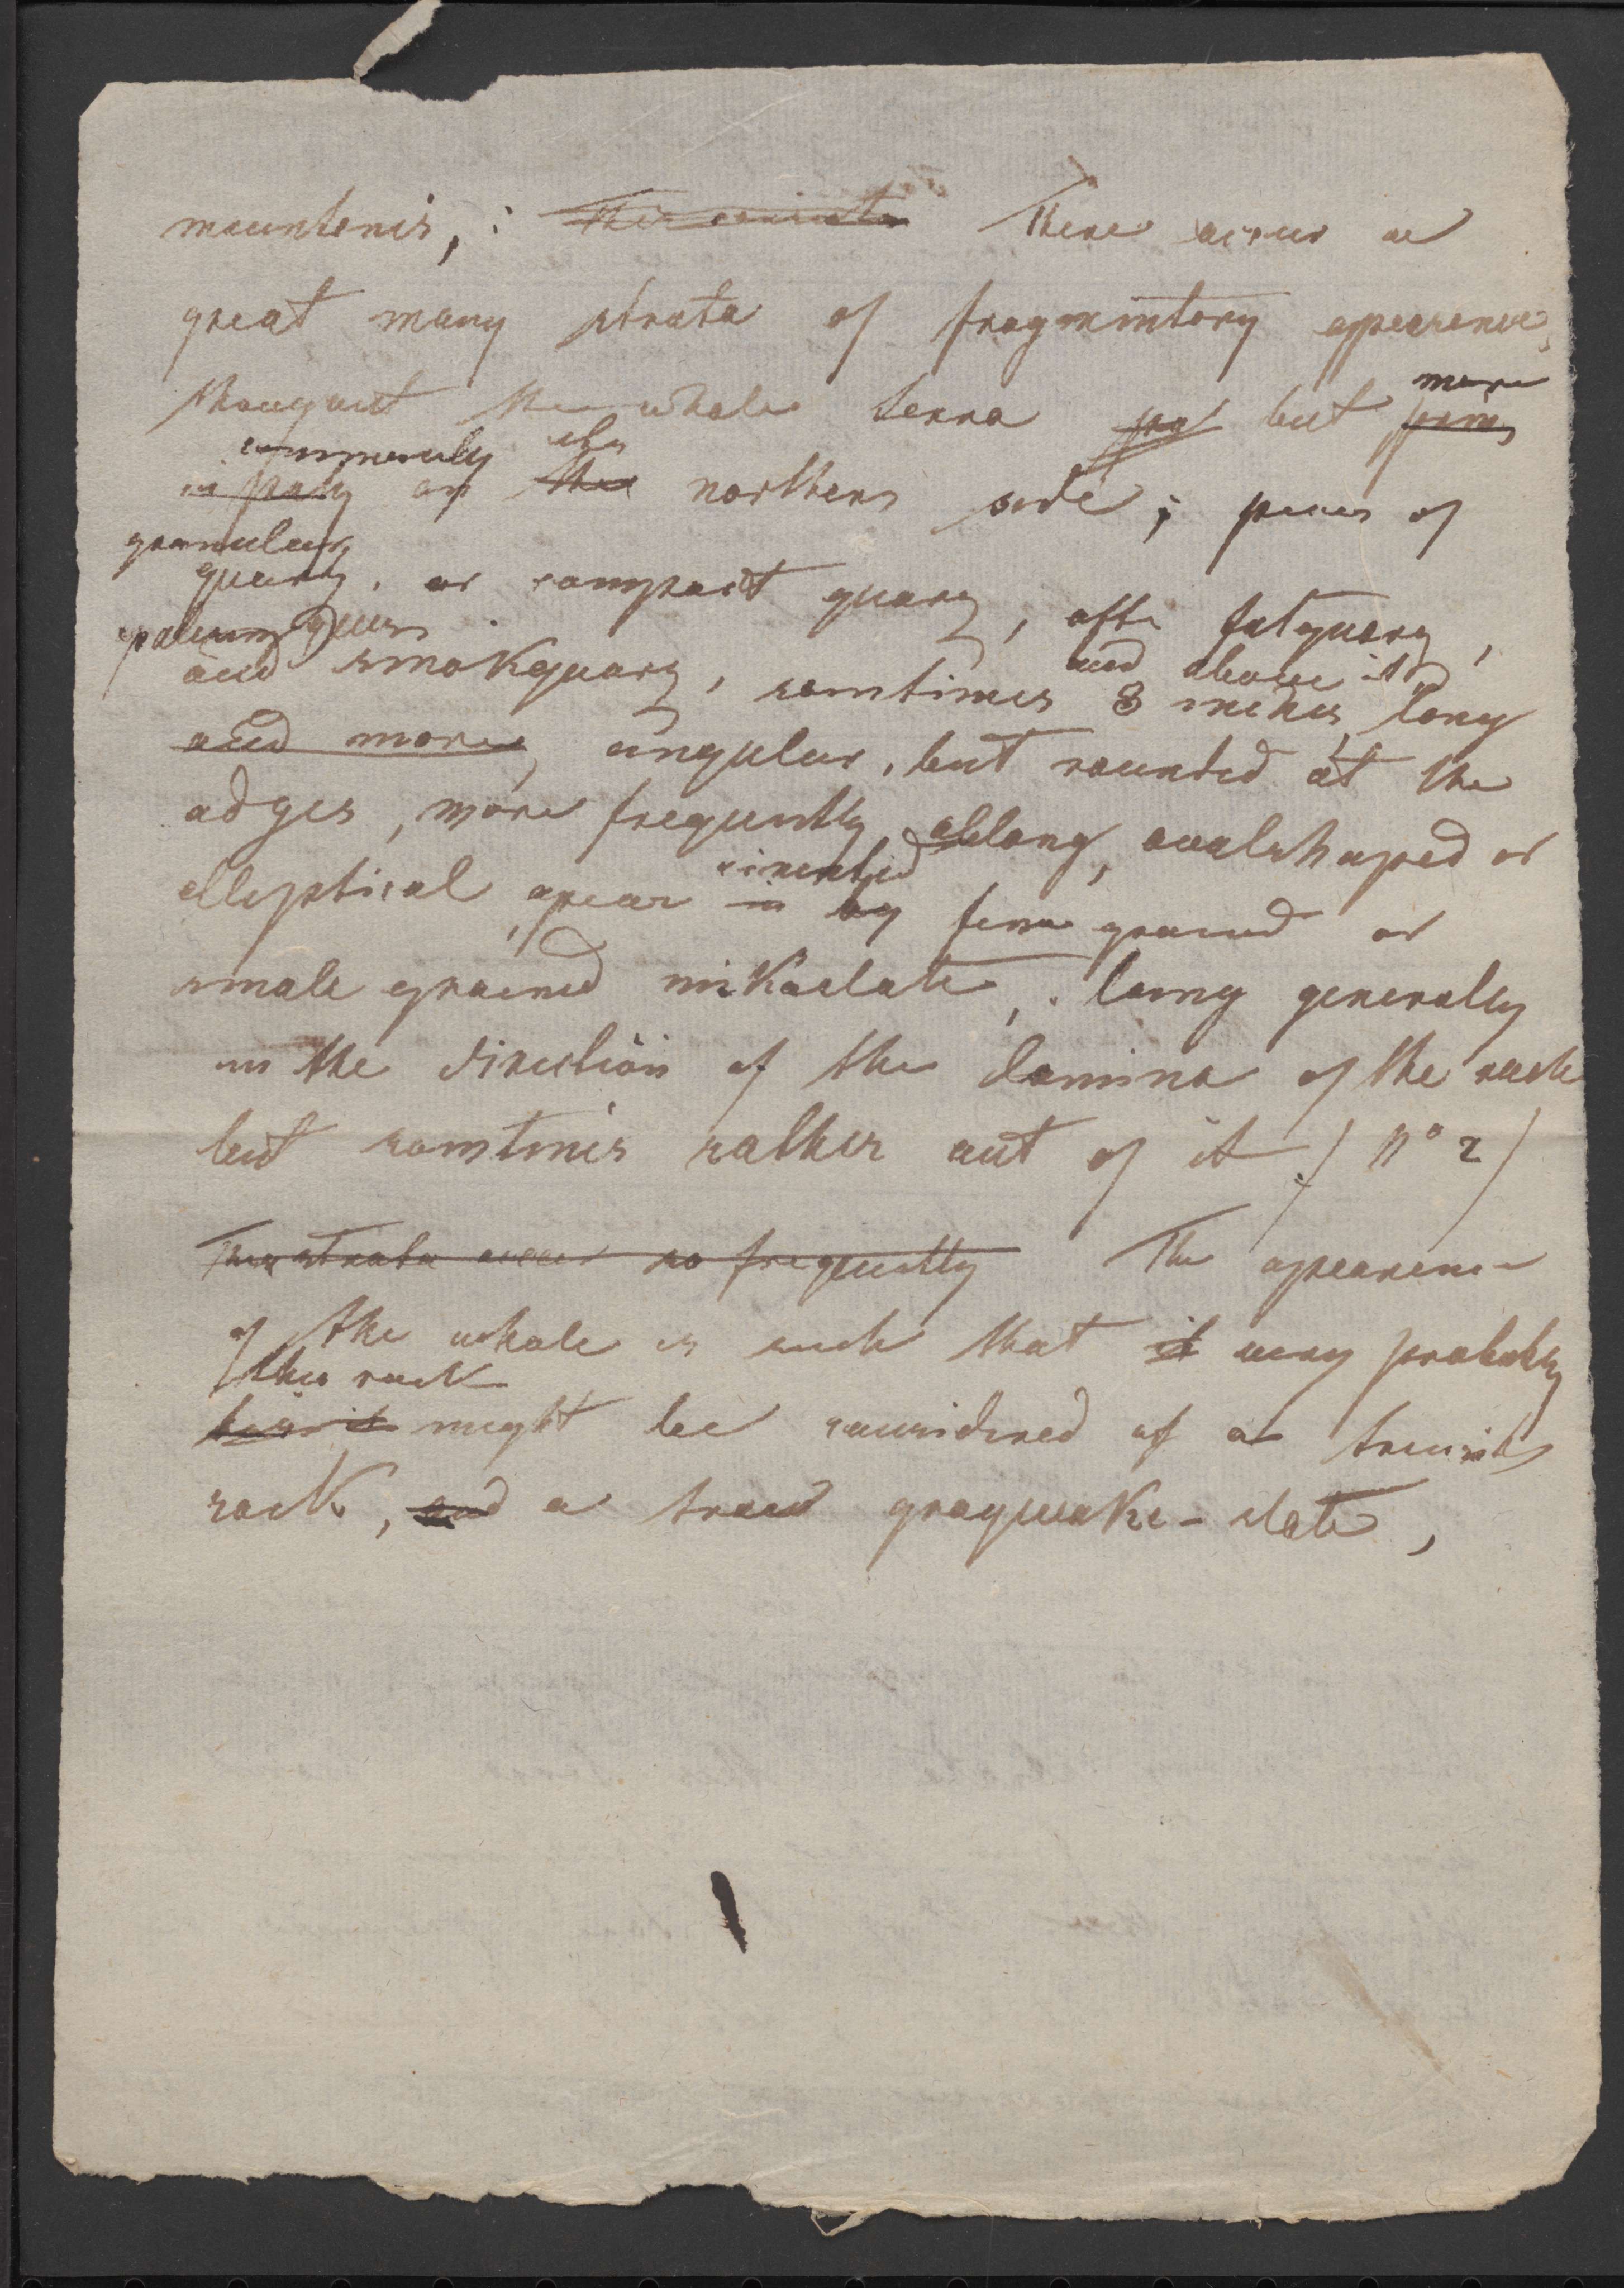 mountenis, : This consists There occur a
great many strata of fragmintory appearence,
thougout the whole terra but more
commonly on the northern side ; peices of
granular
quarz, or compact quarz, ofte fatquarz,
and smokquarz, somtimes 8 inches and above it, long
and more, angular, but rounded at the
adges, more frequently oblong, ovalshaped or
elliptical, apear cimented in by fine grained or
smale grained mikaslate, laing generally
in the direction of the lamina of the rock
but somtimes rather out of it / No 2 /
strata occur so frequently The apearence
of the whole is such that it very probably
this rock
might be considered of a transit
rock, and a graywake-slate,